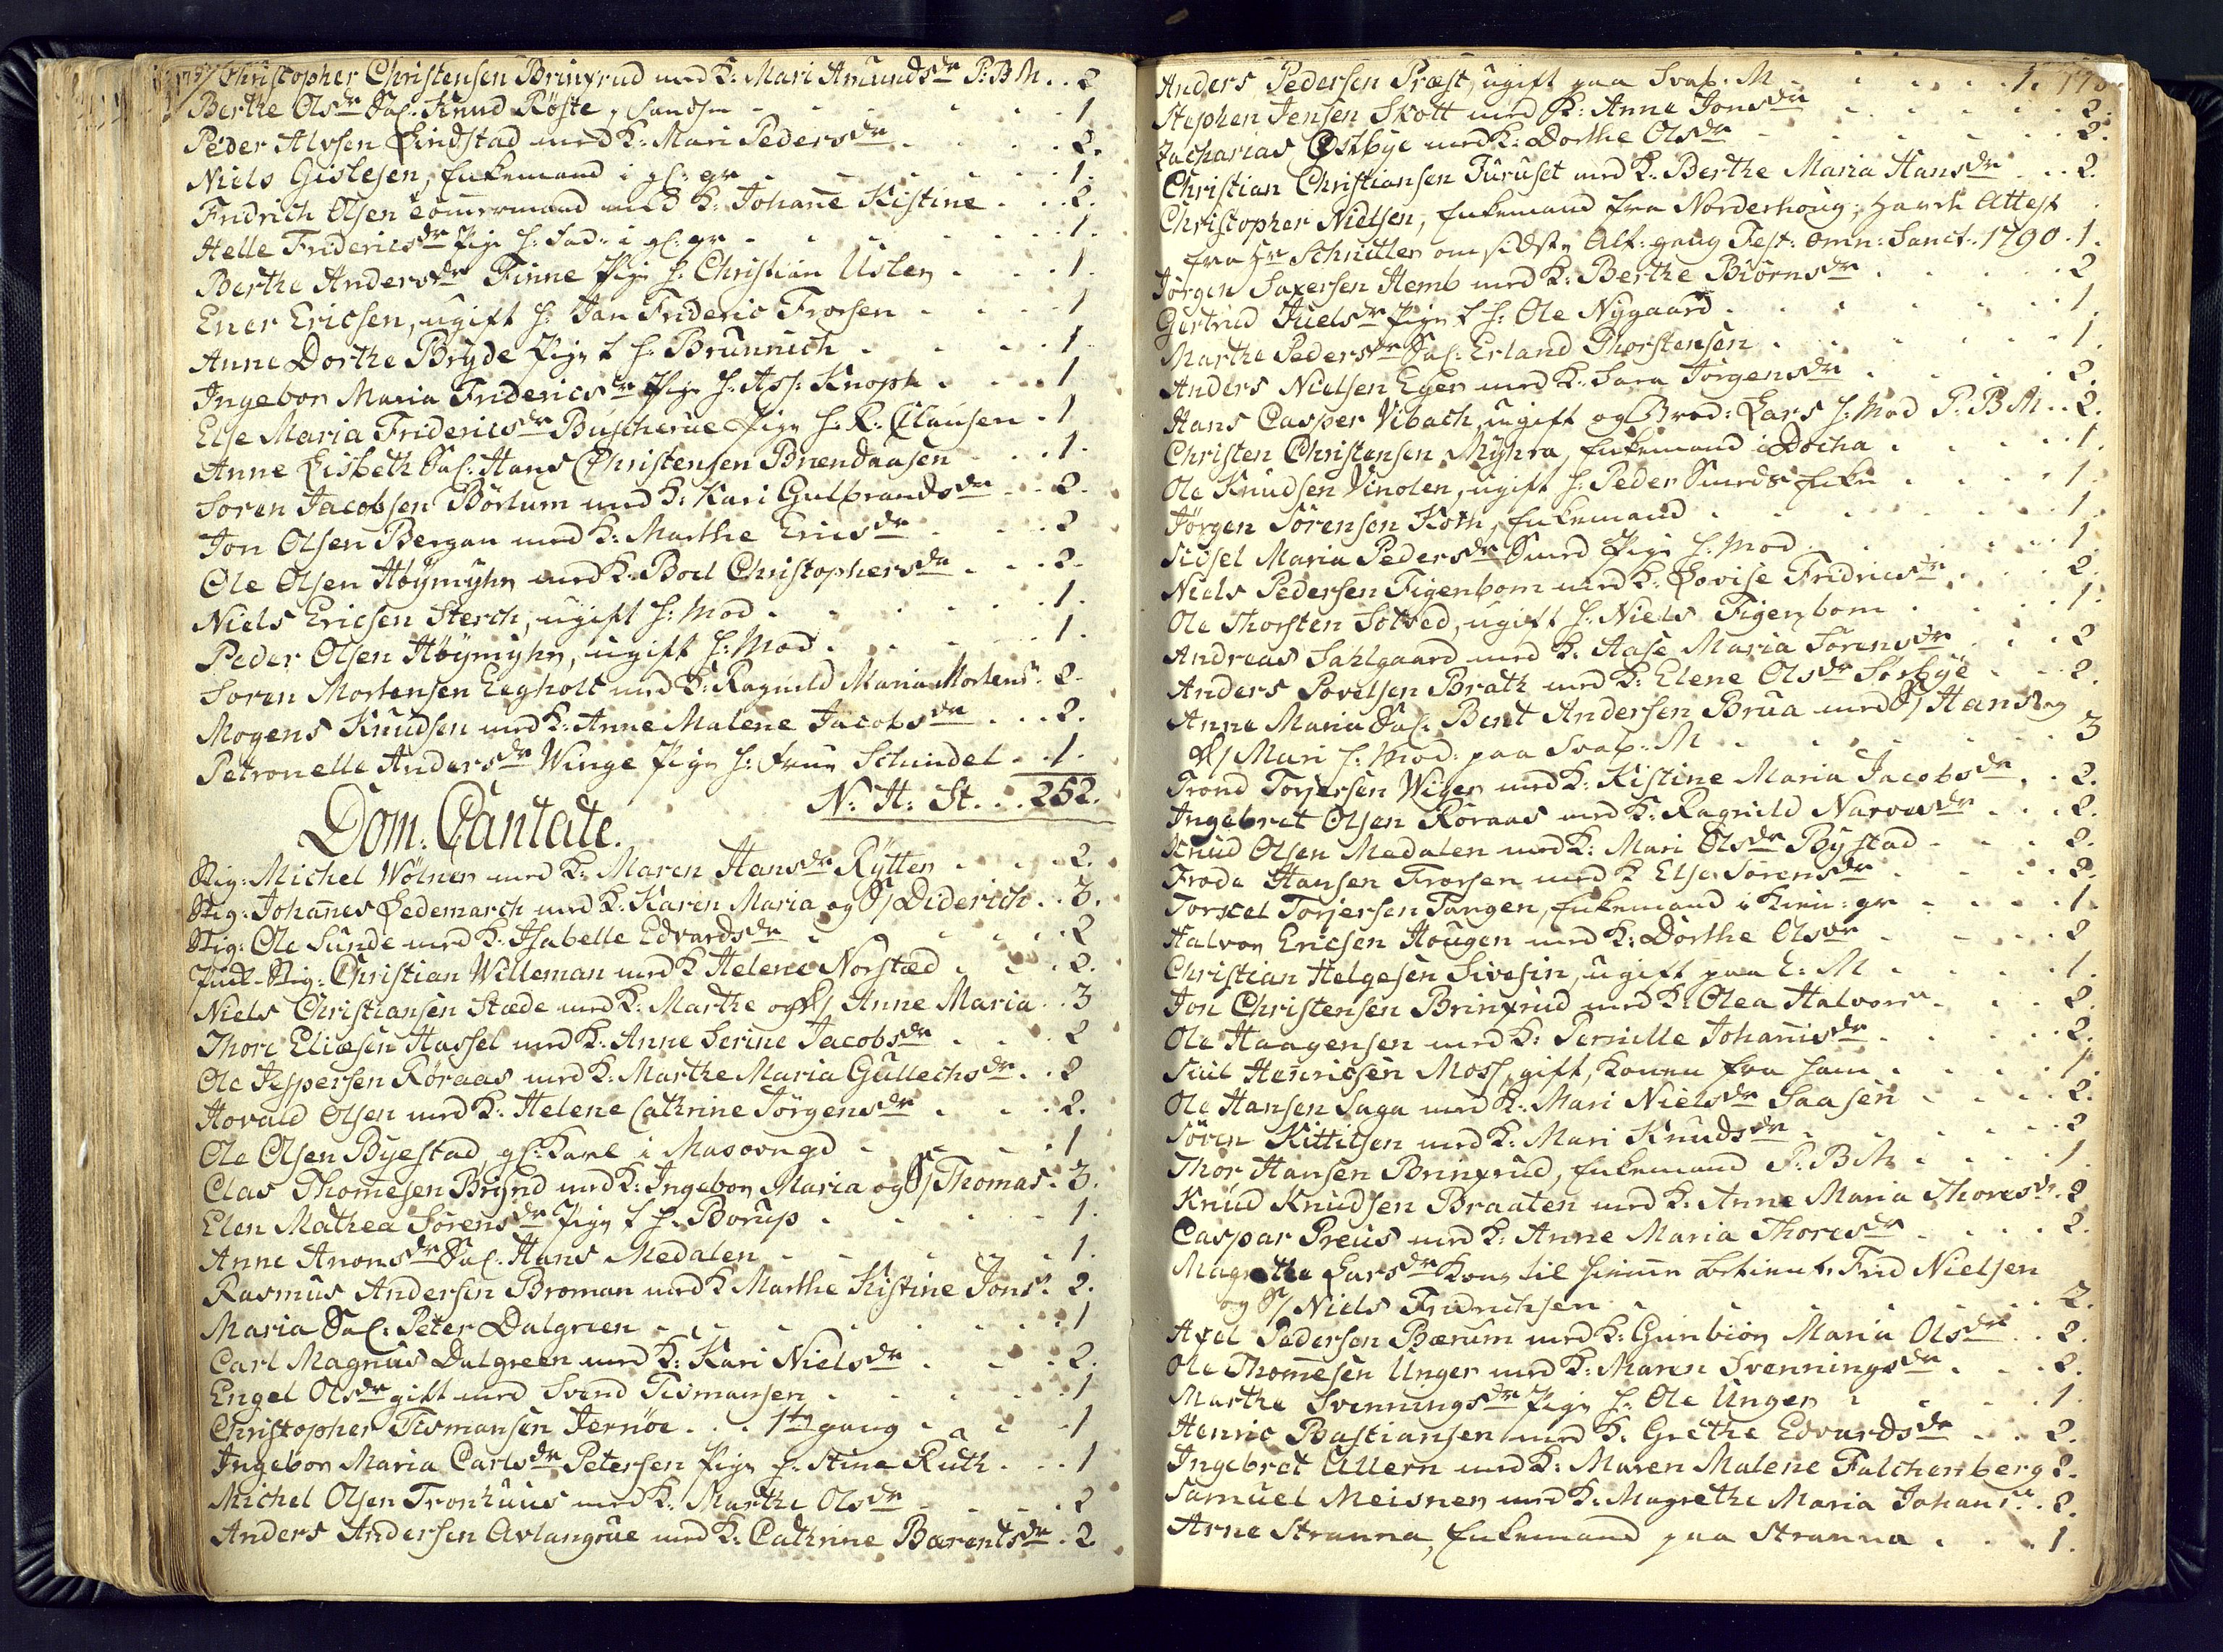 Christopher Christensen Brinxrud med K: Mari Amundsdr P:BM . . 2
Berthe Olsdr Sal: Knud Röste, Sandsm - - - 1
Peder Alvsen Lindstad med K: Mari Pedersdr . . . 2.
Niels Gislesen, Enkemand i gl: gr - - - 1.
Fridrich Olsen Tömmermand med K: Johanne Kistine . . . 2.
Helle Fridericsdr Pige h: Fad: i gl: gr - - - 1.
Berthe Andersdr Finne Pige h: Christian Usler . . . 1.
Ener Ericsen, ugift h: Jan Frideric Frorsen . . . 1
Anne Dorthe Bryde Pige f h: Brünnich . . . 1.
Ingebor Maria Fridericsdr Pige h: Ass: Knoph . . . 1
Else Maria Fridericsdr Buscherue Pige h: R: Clausen . 1
Anne Lisbeth Sal: Hans Christensen Brendaasen . . 1.
Soren Jacobsen Börlum med K: Kari Gulbrandsdr . . 2.
Jon Olsen Bergan med K: Marthe Ericsdr . . . 2
Ole Olsen Höymyhr med K: Boel Christophersdr . . . 2.
Niels Ericsen Sterch, ugift h: Mod . . . 1.
Peder Olsen Höymyhr, ugift h: Mod . . . 1.
Soren Mortensen Eegholt med K: Ragnild Maria Mortensdr 2.
Mogens Knudsen med K: Anne Malene Jacobsdr . . . 2.
Petronelle Andersdr Winge Pige h: Frue Schindel . . 1.
N: H: St . . . 252.
Dom: Cantate.
Stig: Michel Wölner med K: Maren Hansdr Rytter . . . 2.
Stig: Johanes Ledemarch med K: Karen Maria og S/ Diderich . . 3.
Stig: Ole Sunde med K: Isabelle Edvardsdr . . . 2
Stig: Christian Willeman med K Helene Norstæd . . . 2.
Niels Christiansen Stæde med K: Marthe og D/ Anne Maria . . 3
Thore Eliæsen Hassel med K: Anne Serine Jacobsdr . . . 2
Ole Jespersen Röraas med K: Marthe Maria Gullechsdr . . 2
Hovald Olsen med K: Helene Cathrine Jörgensdr . . . 2.
Ole Olsen Byestad, gl: Karl i Masovngd . . . 1
Clas Thomesen Brynd med K: Ingebor Maria og S/ Thomas . 3.
Elen Mathea Sörensdr Pige f h: Borup . . . 1.
Anne Aronsdr Sal: Hans Medalen . . . 1.
Rasmus Andersen Broman med K Marthe Kistine Jonsdr 2.
Maria Sal: Peter Dalgreen . . . 1
Carl Magnus Dalgreen med K: Kari Nielsdr . . . 2.
Engel Olsdr gift med Svend Tismansen . . . 1
Christopher Tismansen Jernöe . . . 1ste gang . . 1
Ingebor Maria Carlsdr Petersen Pige h: Stine Ruth . . . 1
Michel Olsen Tronhuus med K: Marthe Olsdr . . . 2
Anders Andersen Avlangrue med K: Cathrine Barentsdr . 2.
Anders Pedersen Præst, ugift paa Svab: M . . . 1. 178
Stephen Jensen Skott med K: Anne Jonsdr . . . 2.
Zacharias Östbye med K: Dorthe Olsdr . . . 2.
Christian Christiansen Furuset med K: Berthe Maria Hansdr . . 2.
Christopher Nielsen, Enkemand fra Norderhoug; havde Attest
fra Hr Schnitler om sidste Alt: gang Fest: omn: Sanct: 1790 . 1.
Jörgen Saxersen Hemb med K: Berthe Biörnsdr . . . 2
Gertrud Juelsdr Pige f h: Ole Nygaard . . . 1.
Marthe Pedersdr Sal: Erland Thorstensen . . . 1.
Anders Nielsen Eger med K: Sara Jörgensdr . . . 2.
Hans Casper Vibach, ugift og Brod: Lars h: Mod P: B M . . 2.
Christen Christensen Myhra, Enkemand i Docka . . . 1.
Ole Knudsen Vinolen, ugift h: Peder Smeds Enke . . . 1.
Jörgen Sörensen Koth, Enkemand . . . 1.
Sidsel Maria Pedersdr Smed Pige h: Mod . . . 1.
Niels Pedersen Figenbom med K: Lovise Fridricsdr . . . 2.
Ole Thorsten Solved, ugift h: Niels Figenbom . . . 1.
Andreas Sahlgaard med K: Aase Maria Sörensdr . . . 2
Anders Povelsen Brath med K: Elene Olsdr Sörbye . . . 2.
Anne Maria Sal: Bent Andersen Brua med S/ Hans og
D/ Mari h: Mod: paa Svab: M . . . 3
Trond Torjersen Wiger med K: Kistine Maria Jacobsdr . . 2.
Ingebret Olsen Röraas med K: Ragnild Narvesdr . . . 2.
Knud Olsen Medalen med K: Mari Olsdr Bystad . . . 2.
Frode Hansen Frorsen med K Else Sörensdr . . . 2.
Torkel Torjersen Tangen, Enkemand i Kieu: gr . . . 1.
Halvor Ericsen Hougen med K: Dorthe Olsdr . . . 2
Christian Helgesen Sivesin, ugift paa L: M . . . 1.
Jon Christensen Brinxrud med K: Olea Halvorsdr . . . 2.
Ole Haagensen med K: Pernille Johanisdr . . . 2.
Siul Henricsen Moss, gift, konen fra ham . . . 1.
Ole Hansen Saga med K: Mari Nielsdr Saasen . . . 2.
Sören Kittilsen med K: Mari Knudsdr . . . 2
Thor Hansen Brinxrud, Enkemand P: B M . . . 1.
Knud Knudsen Braaten med K: Anne Maria Thoresdr . 2
Caspar Preus med K: Anne Maria Thoresdr . . . 2.
Magrethe Larsdr Kone til betient Frid Nielsen
og S/ Niels Fridrichsen . . . 2.
Axel Pedersen Bærum med K: Gunbiör Maria Olsdr . . 2.
Ole Thomesen Unger med K: Maren Svenningsdr . . . 2.
Marthe Svenningsdr Pige h: Ole Unger . . . 1.
Henric Bastiansen med K: Grethe Edvardsdr . . . 2.
Ingebret Allern med K: Maren Malene Falchenberg 2.
Samuel Meisner med K: Magrethe Maria Johansdr . 2.
Arne Stranna, Enkemand paa Stranna . . . 1.